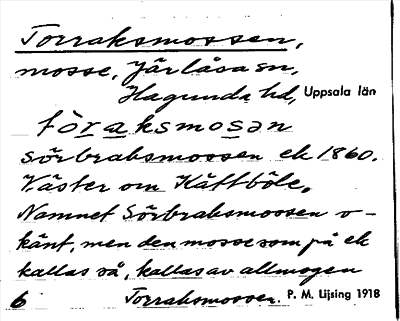 Torraksmossen,
mosse, Järlåsa sn,
Hagunda hd, Uppsala län
tòraksmosan
Sörbraksmossen ek 1860.
Väster om Kättböle.
Namnet Sörbraksmossen o-
känt, men den mosse som på ek
kallas så, kallas av allmogen
6 Torraksmossen. P. M. Lijsing 1918